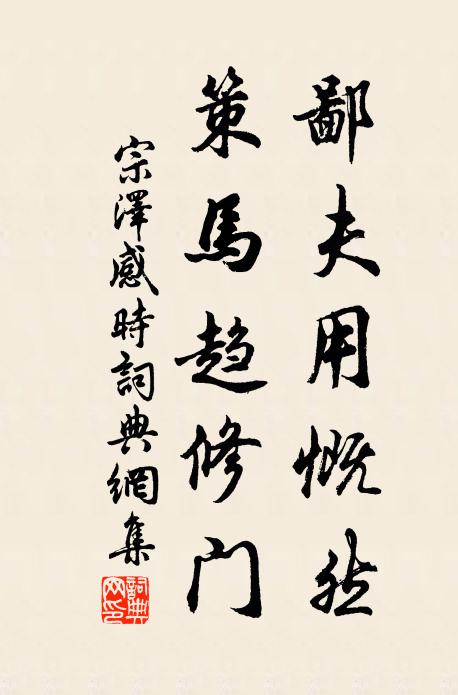 鄙夫用慨然
策馬趨修门
宗澤感時詞典網集
詞典网印